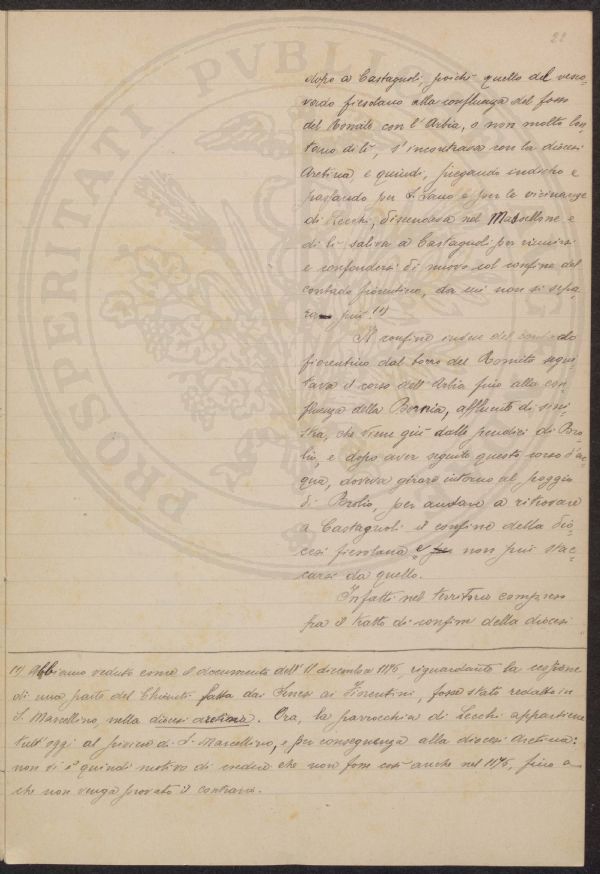 22
dopo a Castagnoli, poichè quello del vesco-
vado fiesolano alla confluenza del fosso
del Romito con l'Arbia, o non molto lon
tano di lì, s'incontrava con la diocesi
Aretina e quindi, piegando indietro e
passando per S. Sano e per le vicinanze
di Lecchi, discendeva nel Massellone e
di lì saliva a Castagnoli per riunirsi
e confondersi di nuovo col confine del
contado fiorentino, da cui non si sepa,
ra più (1)
Il confine invece del contado
fiorentino dal borro del Romito segui
tava il corso dell'Arbia fino alla con
fluenza della Bornia, affluente di sini
stra, che viene giù dalle pendici di Bro
lio, e dopo aver seguito questo corso d'ac
qua, doveva girare intorno al poggio
di Brolio, per andare a ritrovare
a Castagnoli il confine della dio
cesi fiesolana e non più stac
carsi da quello.
Infatti nel territorio compreso
fra il tratto di confine della diocesi
(1) Abbiamo veduto come il documento dell'11 dicembre 1176, riguardante la cessione
di una parte del Chianti fatta dai Senesi ai Fiorentini, fosse stato redatto in
S. Marcellino, nella diocesi aretina. Ora, la parrocchia di Lecchi appartiene
tutt'oggi al piviere di S. Marcellino, e per conseguenza alla diocesi Aretina:
non vi è quindi motivo di credere che non fosse così anche nel 1176, fino a
che non venga provato il contrario.
PROSPERITATI PVBLICAE